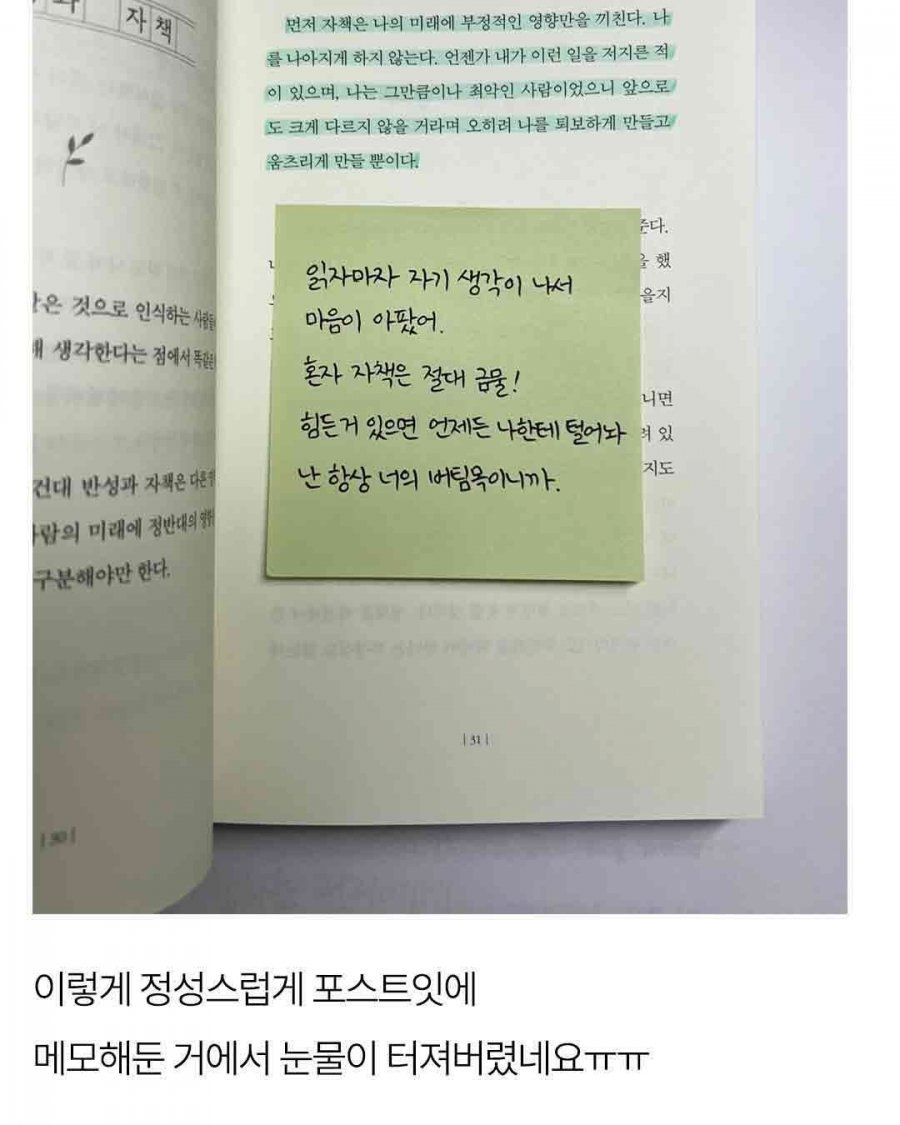 자책
먼저 자책은 나의 미래에 부정적인 영향만을 끼친다. 나
를 나아지게 하지 않는다. 언젠가 내가 이런 일을 저지른 적
이 있으며, 나는 그만큼이나 최악인 사람이었으니 앞으로
도 크게 다르지 않을 거라며 오히려 나를 퇴보하게 만들고
움츠리게 만들 뿐이다.
읽자마자 자기 생각이 나서
마음이 아팠어.
혼자 자책은 절대 금물!
힘든거 있으면 언제든 나한테 털어놔
난 항상 너의 버팀목이니까.
은 것으로 인식하는 사람들
생각한다는 점에서 똑같은
건대 반성과 자책은 다른
사람의 미래에 정반대의
구분해야만 한다.
|30|
|31|
이렇게 정성스럽게 포스트잇에
메모해둔 거에서 눈물이 터져버렸네요ㅠㅠ